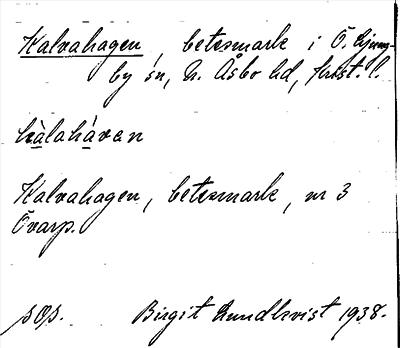 Kalvahagen, betesmark i Ö. Ljung-
by sn, N. Åsbo hd, Krist. l.
kàlahàven
Kalvahagen, betesmark, nr 3
Övarp.
sOs. Birgit Lundkvist 1938.